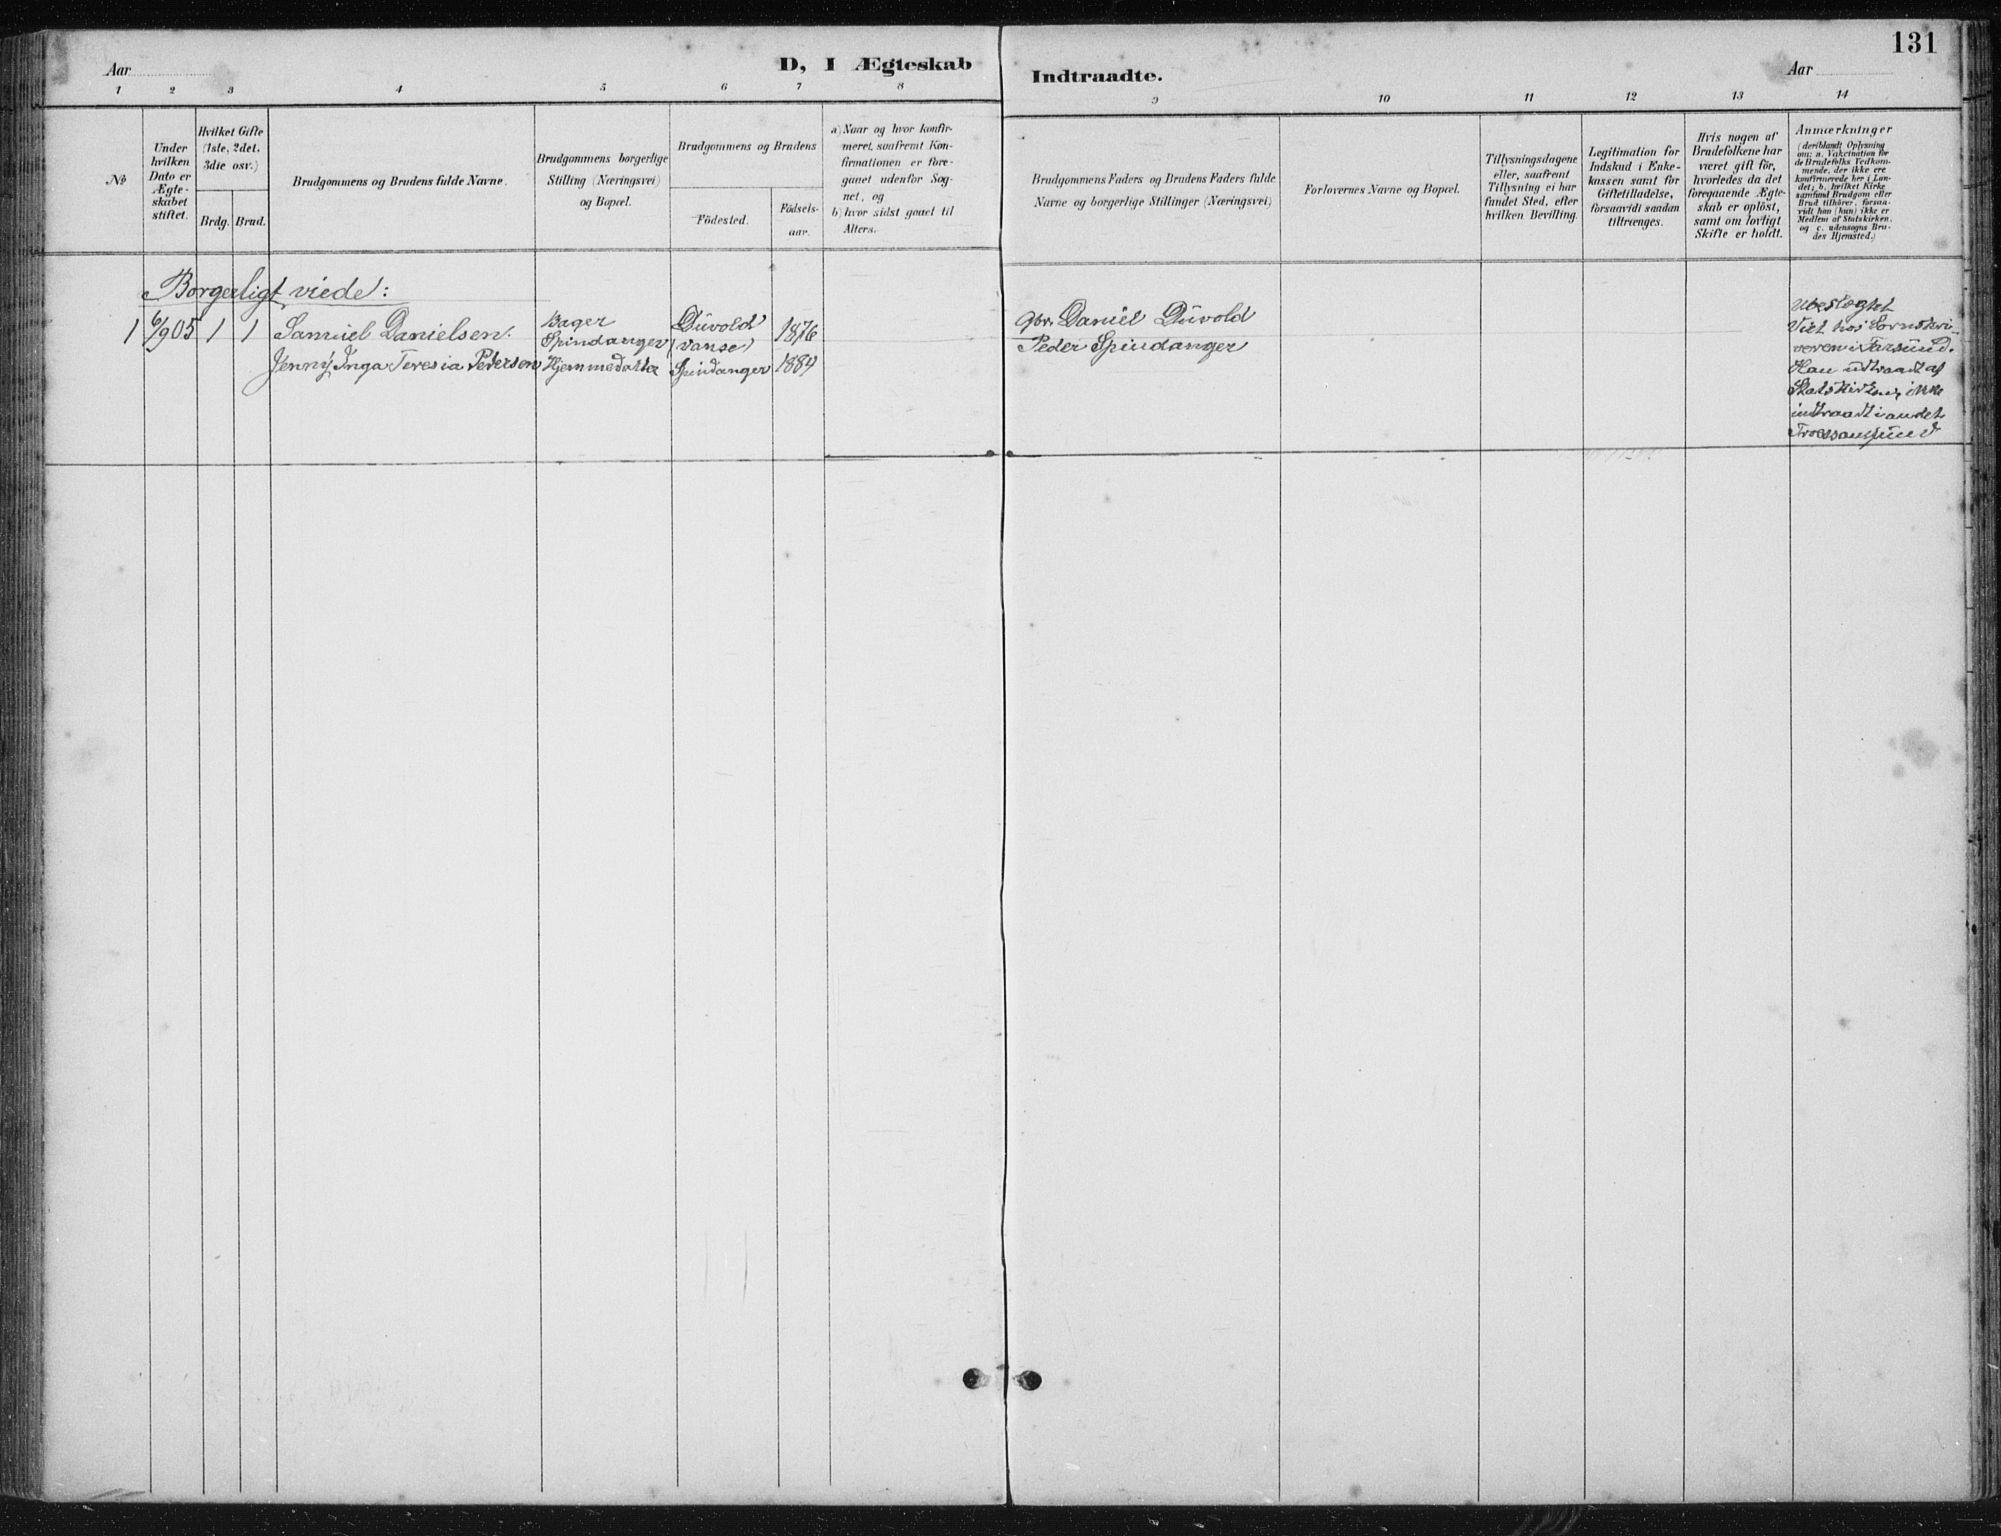 131
Aar
D, I Ægteskab
Indtraadte.
Aar
1 2 3 4 5 6 7 8 9 10 11 12 13 14
№
Under
hvilken
Dato er
Ægte-
skabet
stiftet.
Hvilket Gifte
(1ste, 2det,
3die osv.)
Brdg. Brud.
Brudgommens og Brudens fulde Navne.
Brudgommens borgerlige
Stilling (Næringsvei)
og Bopæl.
Brudgommens og Brudens
Födested.
Födsels-
aar.
a) Naar og hvor konfir-
meret, saafremt Kon-
firmationen er fore-
gaaet udenfor Sog-
net, og
b) hvor sidst gaaet til
Alters.
Brudgommens Faders og Brudens Faders fulde
Navne og borgerlige Stillinger (Næringsvei)
Forlovernes Navne og Bopæl.
Tillysningsdagene
eller, saafremt
Tillysning ei har
fundet Sted, efter
hvilken Bevilling.
Legitimation for
Indskud i Enke-
kassen samt for
Giftetilladelse,
forsaavidt saadan
tiltrænges.
Hvis nogen af
Brudefolkene har
været gift för,
hvorledes da det
foregaaende Ægte-
skab er oplöst,
samt om lovligt
Skifte er holdt.
Anmærkninger
(deriblandt Oplysning
om: a. Vakcination for
de Brudefolks Vedkom-
mende, der ikke ere
konfirmerede her i Lan-
det; b. hvilket Kirke
samfund Brudgom eller
Brud tilhörer, forsaa-
vidt han (hun) ikke er
Medlem af Statskirken,
og c. udensogns Bru-
des Hjemsted.)
Borgerligt viede:
1 6/9 05 1 1 Samuel Danielsen. Bager Düvold 1876 Gbr. Daniel Düvold
Spindanger (Vanse) Peder Spindanger
Jenny Inga Teresia Pedersen Hjemmedatter Spindanger 1884
Ubeslægtet
Viet hos Sorenskri-
veren i Farsund.
Han udtraadt af
Statskirken, ikke
indtraadt i andet
Troessamfund